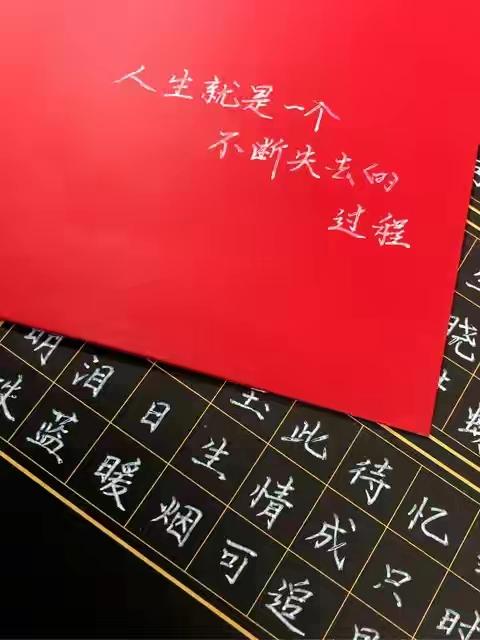 人生就是一个
不断失去的
过程
明
泪蓝
日暖
玉生烟
此情可
待成追
忆只
时
晓